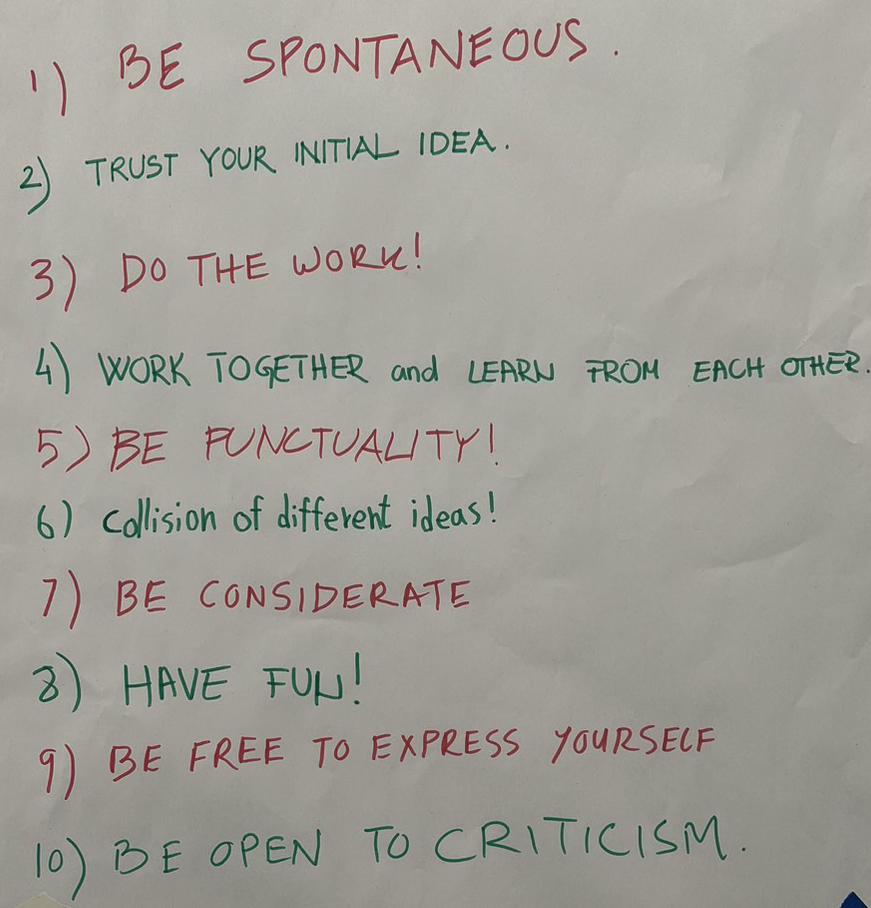 1) BE SPONTANEOUS.
2) TRUST YOUR INITIAL IDEA.
3) DO THE WORK!
4) WORK TOGETHER and LEARN FROM EACH OTHER.
5) BE PUNCTUALITY!
6) Collision of different ideas!
7) BE CONSIDERATE
8) HAVE FUN!
9) BE FREE TO EXPRESS YOURSELF
10) BE OPEN TO CRITICISM.